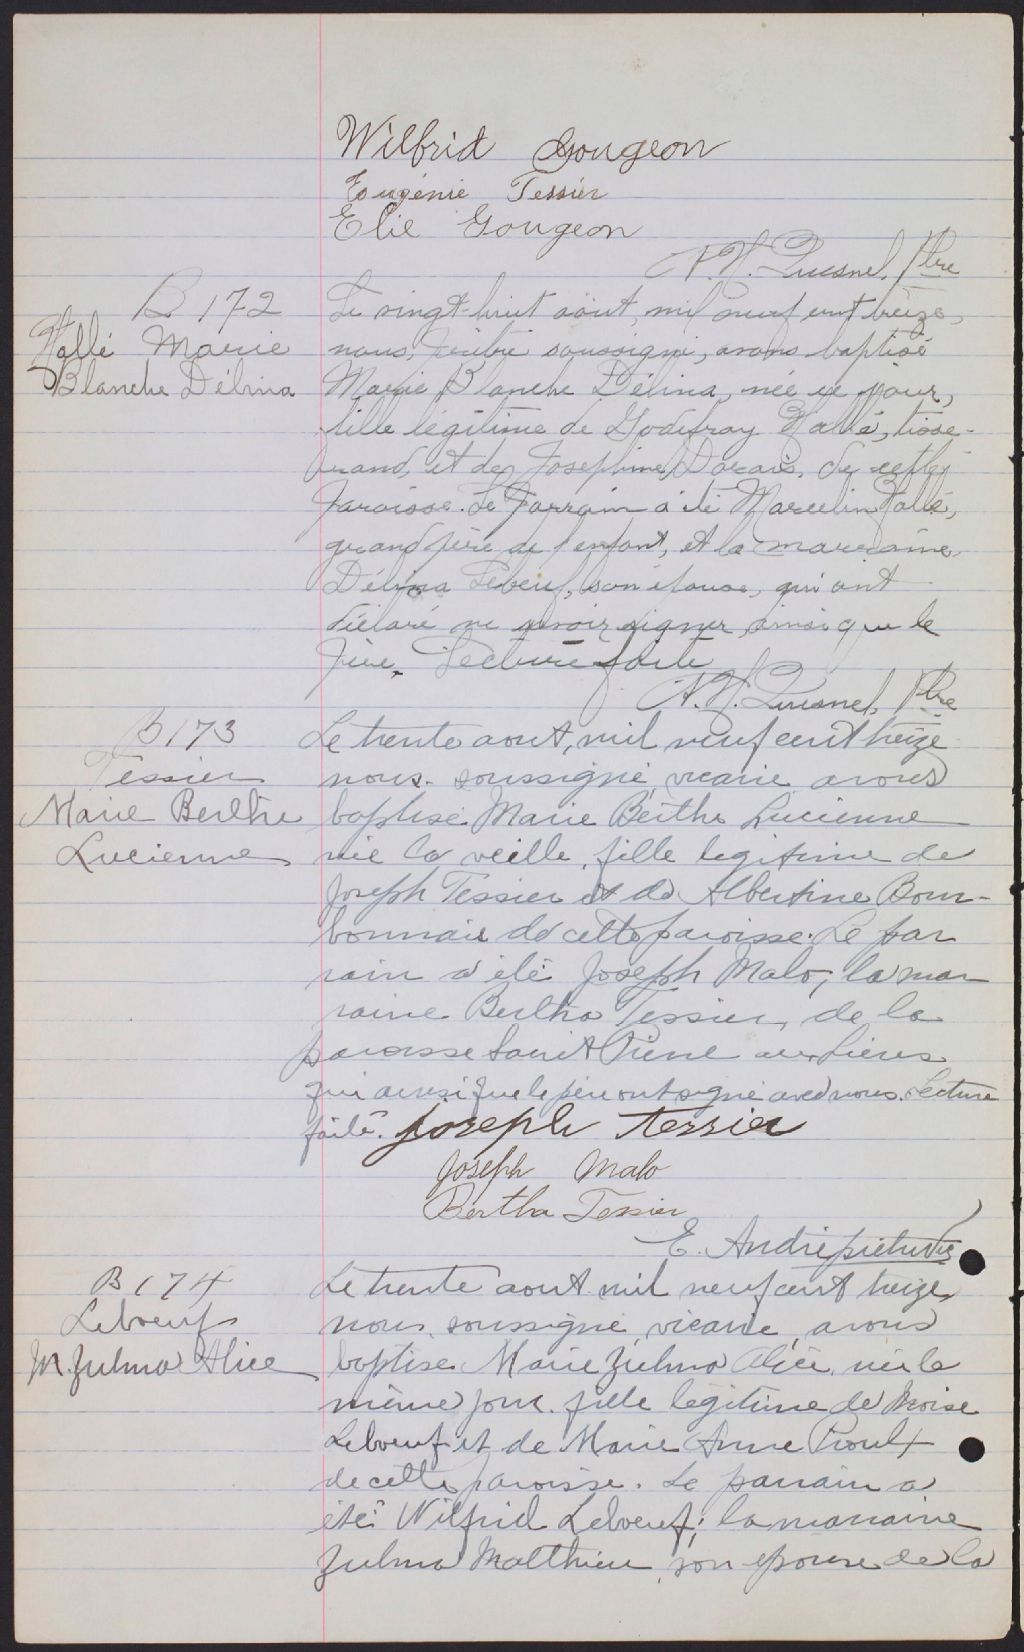 Wilfrid Gougeon
Eugénie Tessier
Elie Gougeon
A. N. Quesnel, Ptre
B 172
Hallé Marie
Blanche Délina
Le vingt-huit août, mil neuf cent treize,
nous, prêtre soussigné, avons baptisé
Marie Blanche Délina, née ce jour,
fille légitime de Godefray Hallé, tisse-
rand, et de Josephine Dazais, de cette
paroisse. Le parrain a été Marcelin Hallé,
grand père de l'enfant, et la marraine,
Délina Lebeuf, son épouse, qui ont
déclaré ne savoir signer, ainsi que le
père. Lecture faite
A. N. Quesnel, Ptre
B 173
Tessier
Marie Berthe
Lucienne
Le trente aout, mil neuf cent treize
nous soussigné, vicaire avons
baptisé Marie Berthe Lucienne
née la veille, fille legitime de
Joseph Tessier et de Albertine Bour-
bonnais de cette paroisse. Le par
rain a été Joseph Malo, la mar
raine Bertha Tessier, de la
paroisse Saint Pierre aux Liens
qui ainsi que le père ont signé avec nous. Lecture
faite. Joseph Tessier
Joseph Malo
Bertha Tessier
E. André, prêtre Vic
B 174
Leboeuf
M. Zulma Alice
Le trente aout mil neuf cent treize,
nous, soussigné, vicaire, avons
baptisé Marie Zulma Alice, née le
même jour, fille légitime de Moise
Leboeuf et de Marie Anne Proulx
de cette paroisse. Le parrain a
été Wilfrid Leboeuf; la marraine
Zulma Matthieu, son epouse de la